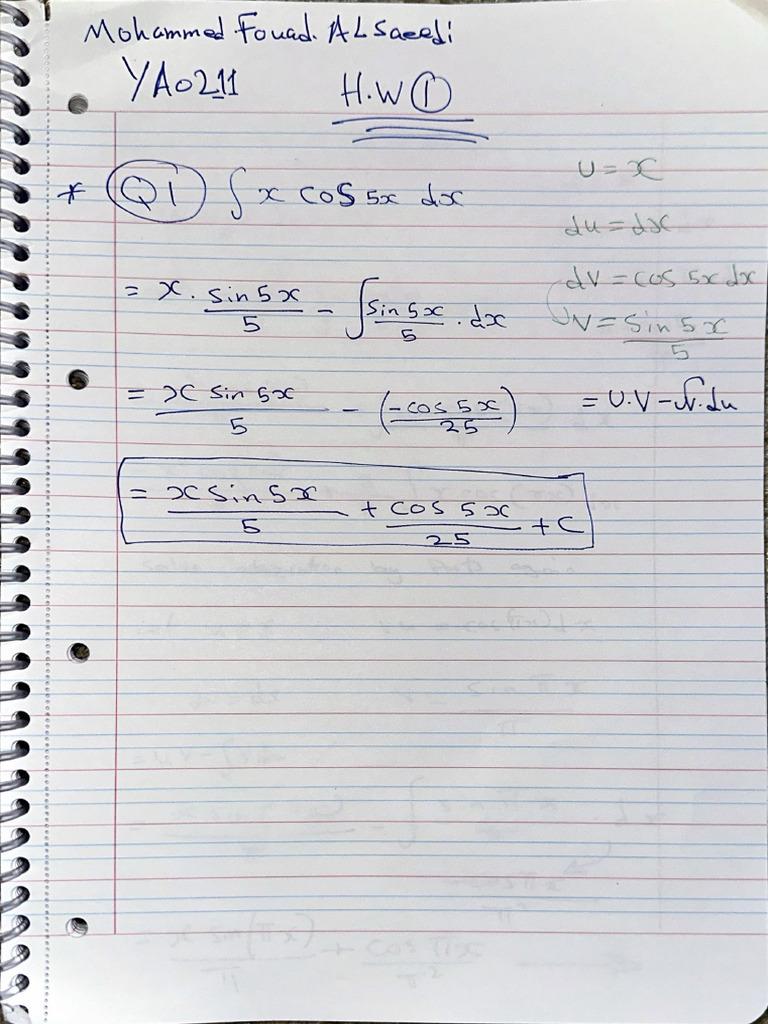 Mohammed Fouad. ALSaeedi
YA0211 H.W ①
* Q1 ∫ x cos 5x dx
u = x
du = dx
dv = cos 5x dx
v = sin 5x / 5
= x . sin 5x / 5 - ∫ sin 5x / 5 . dx
= x sin 5x / 5 - (-cos 5x / 25)
= u.v - ∫v.du
= x sin 5x / 5 + cos 5x / 25 + C